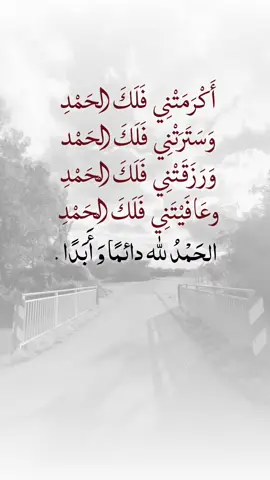 أَكْرَمَتْنِي فَلَكَ الحَمْدِ
وَسَتَرَتْنِي فَلَكَ الحَمْدِ
وَرَزَقَتْنِي فَلَكَ الحَمْدِ
وعَافَيْتَنِي فَلَكَ الحَمْدِ
الحَمْدُ لله دائمًا وَ أَبَدًا .